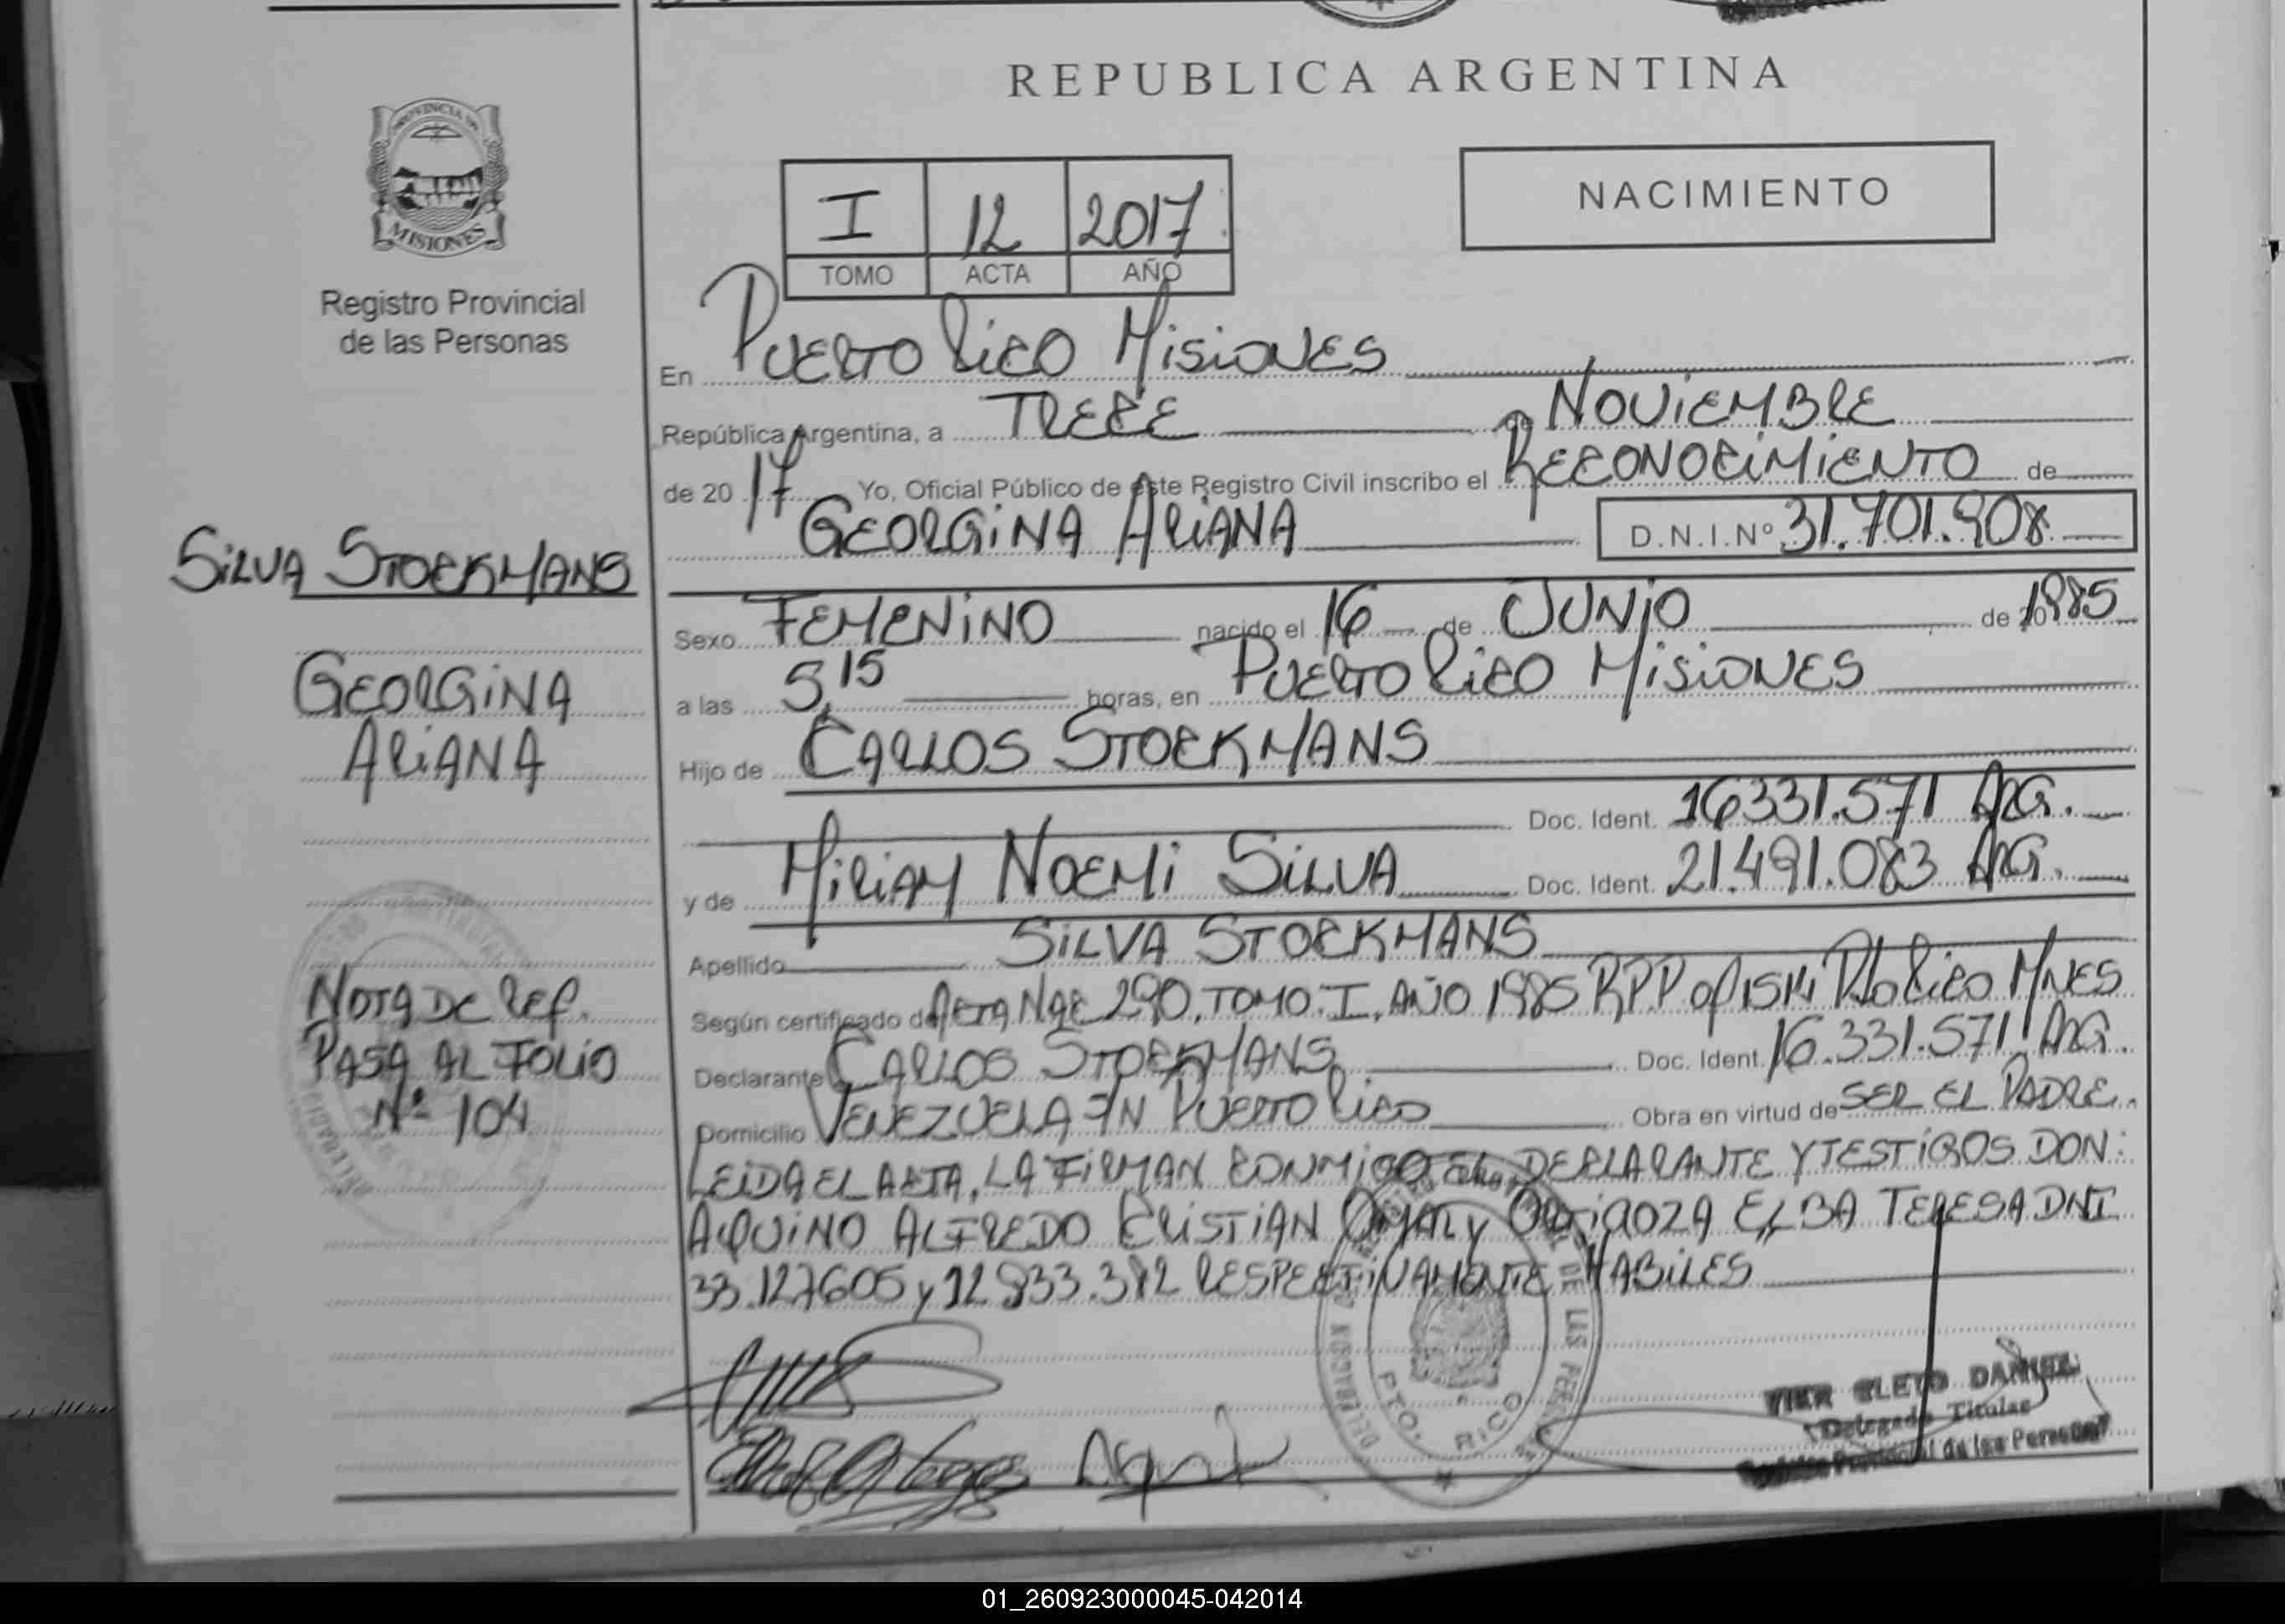 REPUBLICA ARGENTINA
PROVINCIA DE
MISIONES
Registro Provincial
de las Personas
NACIMIENTO
I 12 2017
TOMO ACTA AÑO
En PUERTO RICO MISIONES
República Argentina, a TRECE de NOVIEMBRE
de 2017 Yo, Oficial Público de este Registro Civil inscribo el RECONOCIMIENTO de
GEORGINA ARIANA D.N.I.Nº 31.701.908
SILVA STOCKMANS
GEORGINA
ARIANA
NOTA DE REF.
PASA AL FOLIO
Nº 104
Sexo FEMENINO nacido el 16 de JUNIO de 20 1985
a las 5,15 horas, en PUERTO RICO MISIONES
Hijo de CARLOS STOCKMANS
Doc. Ident. 16331.571 ARG.
y de MIRIAM NOEMI SILVA Doc. Ident. 21.491.083 ARG.
Apellido SILVA STOCKMANS
Según certificado de ACTA NAC 290, TOMO: I, AÑO 1985 RPP Pto RICO MNES
Declarante CARLOS STOCKMANS Doc. Ident. 16.331.571 ARG.
Domicilio VENEZUELA S/N PUERTO RICO Obra en virtud de SER EL PADRE.
LEIDA EL ACTA, LA FIRMAN CONMIGO EL DECLARANTE Y TESTIGOS DON:
AQUINO ALFREDO CRISTIAN OMAR y ORTIGOZA ELBA TERESA DNI
33.127605 y 12.833.382 RESPECTIVAMENTE HABILES
PTO. RICO
CLETO DANIEL
Delegado Titular
Registro Provincial de las Personas
01_260923000045-042014